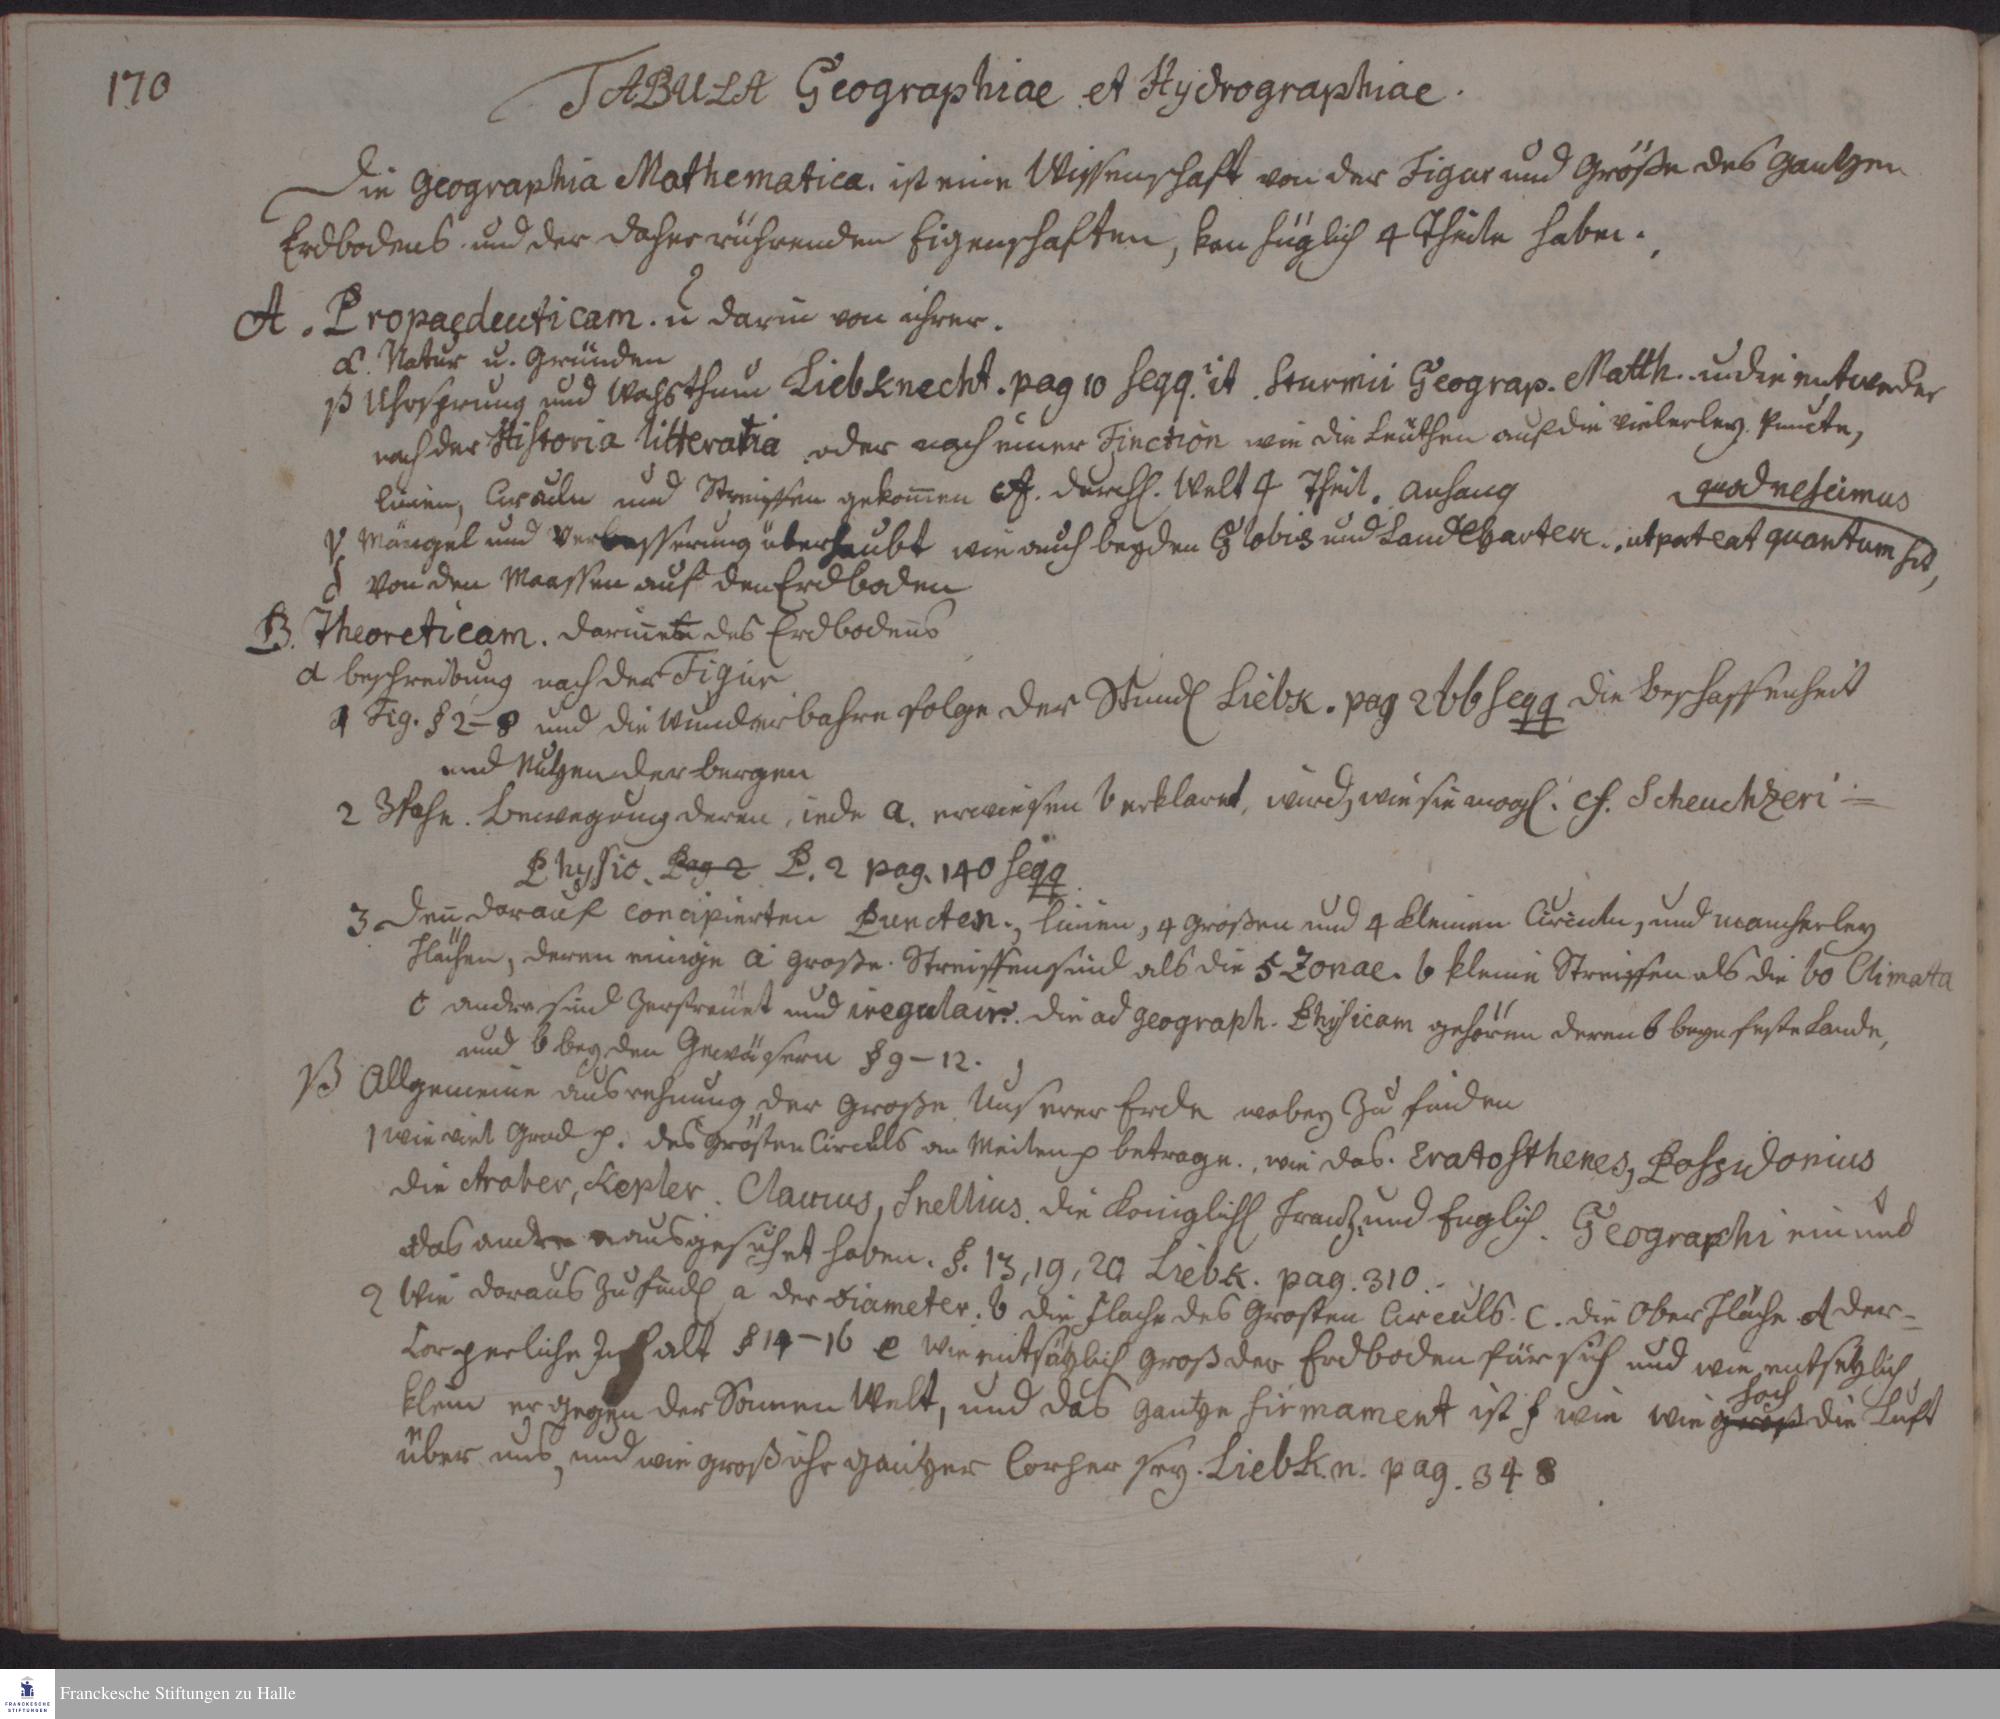 170
TABULA Geographiae et Hydrographiae.
Die Geographia Mathematica. ist eine Wissenschaft von der Figur und Größe des gantzen
Erdbodens und der daher rührenden Eigenschaften, kan füglich 4 Theile haben.
A. Propaedeuticam. u darin von ihrer.
α. Natur u. Gründen
β Uhrsprung und Wachsthum Liebknecht. pag 10 seqq. it. Sturmii Geograp. Matth. u die entweder
nach der Historia litteraria oder nach einer Finction wie die Leüthen auf die vielerley Puncte,
linien, Circuln und Streiffen gekommen cf. durchl. Welt 4 Theil. anhang
quod nescimus
γ Mängel und Verbesserung überhaubt wie auch bey den Globis und Land Charten. ut pateat quantum sit,
δ Von den Maassen auf den Erdboden
B. Theoreticam. darinnen des Erdbodens
α beschreibung nach der Figur
1 Fig. § 2-8 und die Wunderbahre folge der Stund Liebk. pag 266 seqq die Beschaffenheit
und Nutzen der bergen
2 Bewegung deren iede a. erwiesen b erklaret, wird, wie sie mogl. cf. Scheuchzeri =
Physic. Pag 2 P. 2 pag. 140 seqq
3 Denn darauf concipierten Puncten., linien, 4 großen und 4 kleinen Circuln, und mancherley
Flächen, deren einige a große Streiffen sind als die 5 Zonae. b kleine Streiffen als die 60 Climata
c andre sind zerstreuet und iregulair. die ad geograph. Physicam gehören deren 6 beym feste Lande,
und 6 bey den Gewäsern § 9-12.
β Allgemeine ausrehnung der Große Unserer Erde wobey zu finden
1 wie viel Grad p. des grösten Circkls an Meilen p betrage., wie das. Eratosthenes, Possidonius
die Araber, Kepler. Clavius, Snellius. die Königlich Frantz. und Englisch. Geographi ein und
das andre ausgeführt haben. §. 13, 19, 20 Liebk. pag. 310.
2 Wie daraus zu find a der Diameter. b die Flache des Grosten Circuls. c. die Ober Fläche d der-
Corperliche Inhalt § 14-16 e Wie entsetzlich groß der Erdboden für sich und wie entsetzlich
klein er gegen der Sonnen Welt, und das gantze Firmament ist f wie wie groß hoch die Luft
über uns, und wie groß ihr gantzer Corper sey. Liebk.n. pag. 348
Franckesche Stiftungen zu Halle